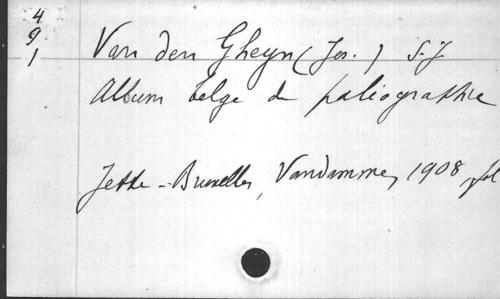 4
9
1
Van den Gheyn (Jos.) S.J.
Album belge de paléographie
Jette-Bruxelles, Vandamme, 1908, fol